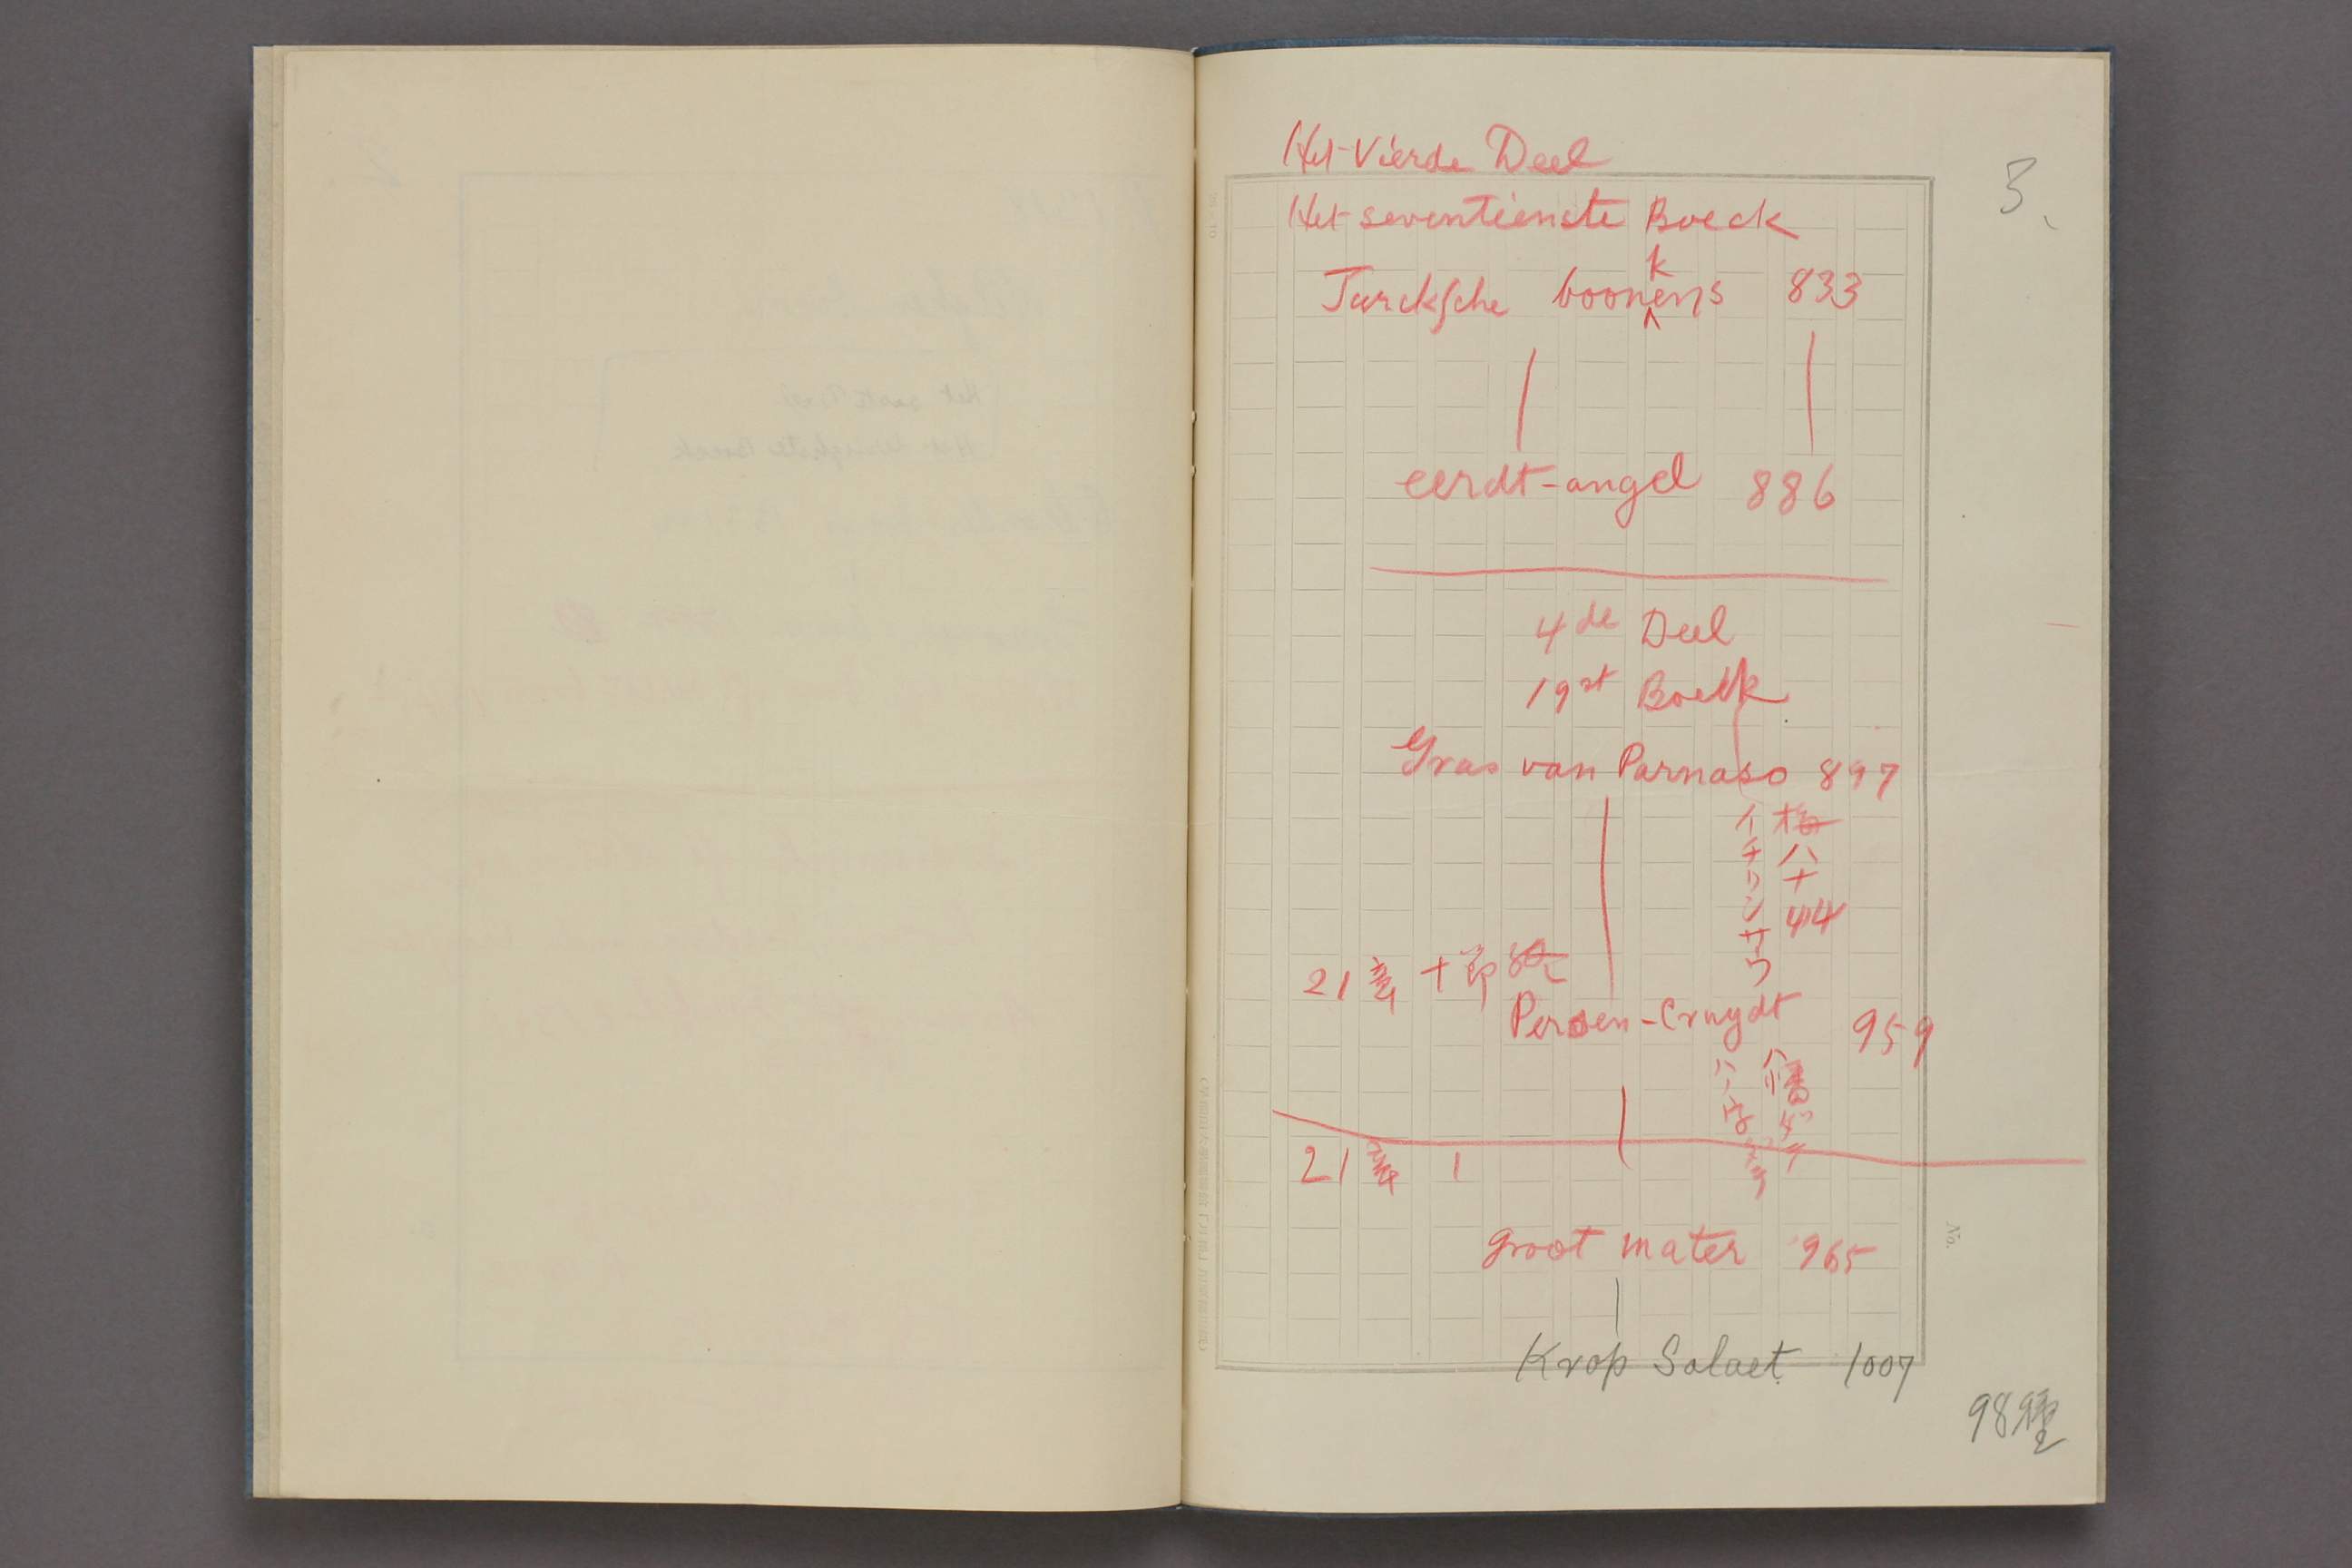 3.
Het Vierde Deel
Het seventienste Boeck
k
Turcksche boonens 833
eerdt-angel 886
4de Deel
19st Boeck
Gras van Parnaso 897
梅ハチ艸
イチリンサウ
21章 十節
Persen-Cruydt 959
21章 1
groot mater 965
Krop Salaet 1007
98種